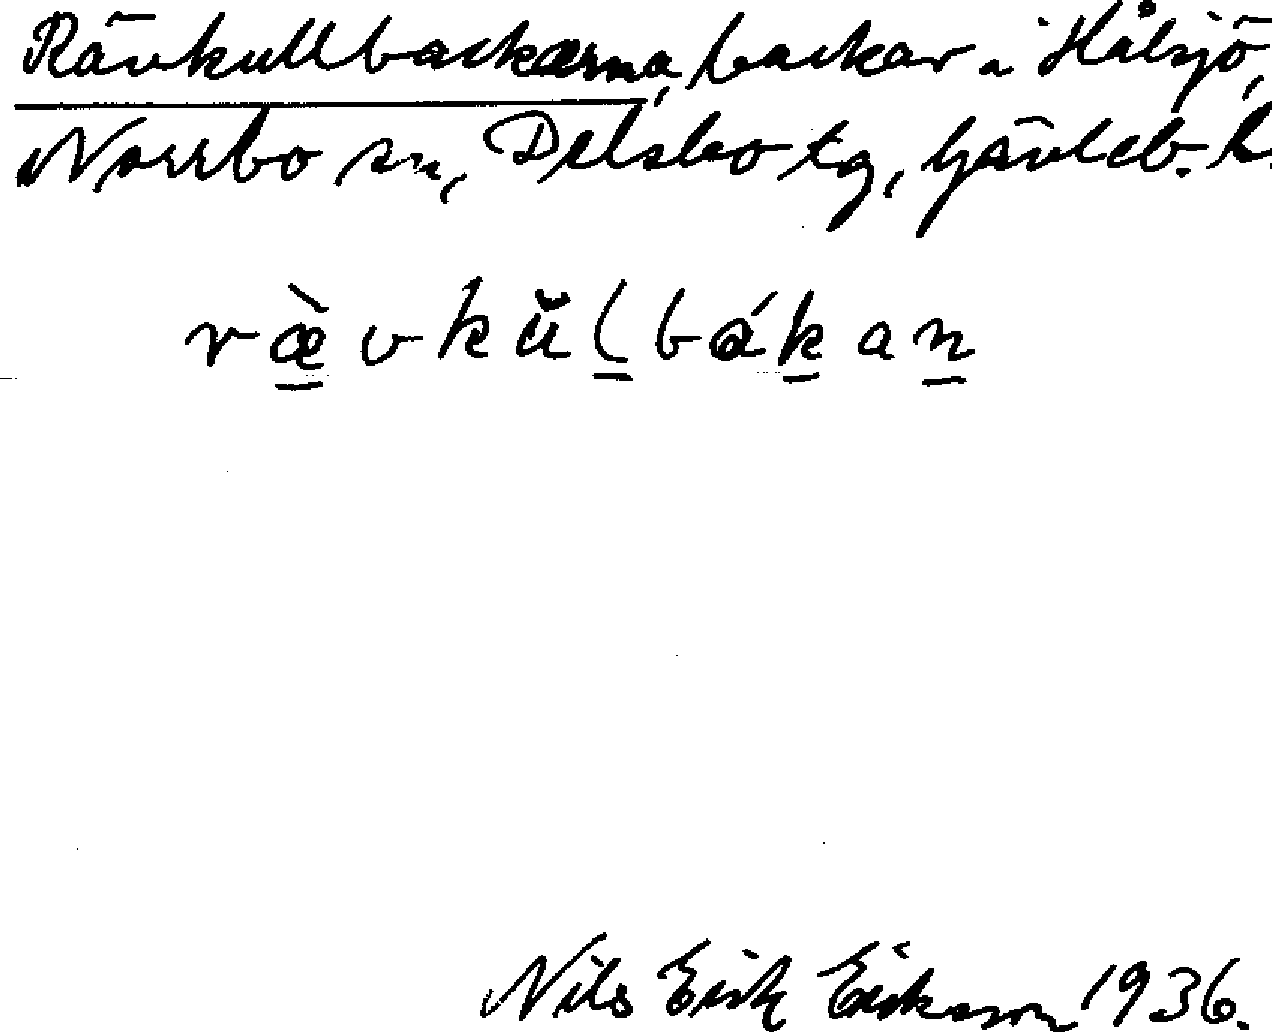 Rävkullbackarna, backar i Hålsjö,
Norrbo sn, Delsbo tg, Gävleb. l.
ræ̀vkŭlbákan
Nils Erik Eriksson 1936.